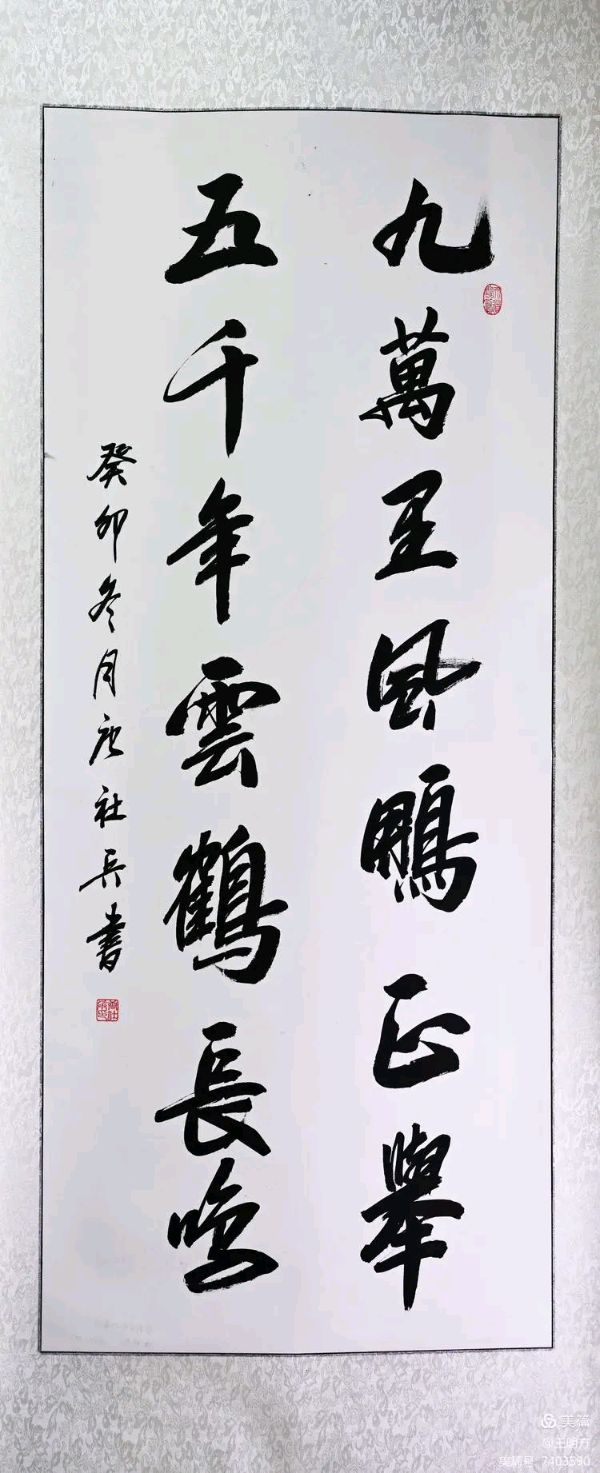 九萬里風鵬正舉
五千年雲鶴長鳴
癸卯冬月唐社兵書
美篇
@王明方
美篇号 7403590